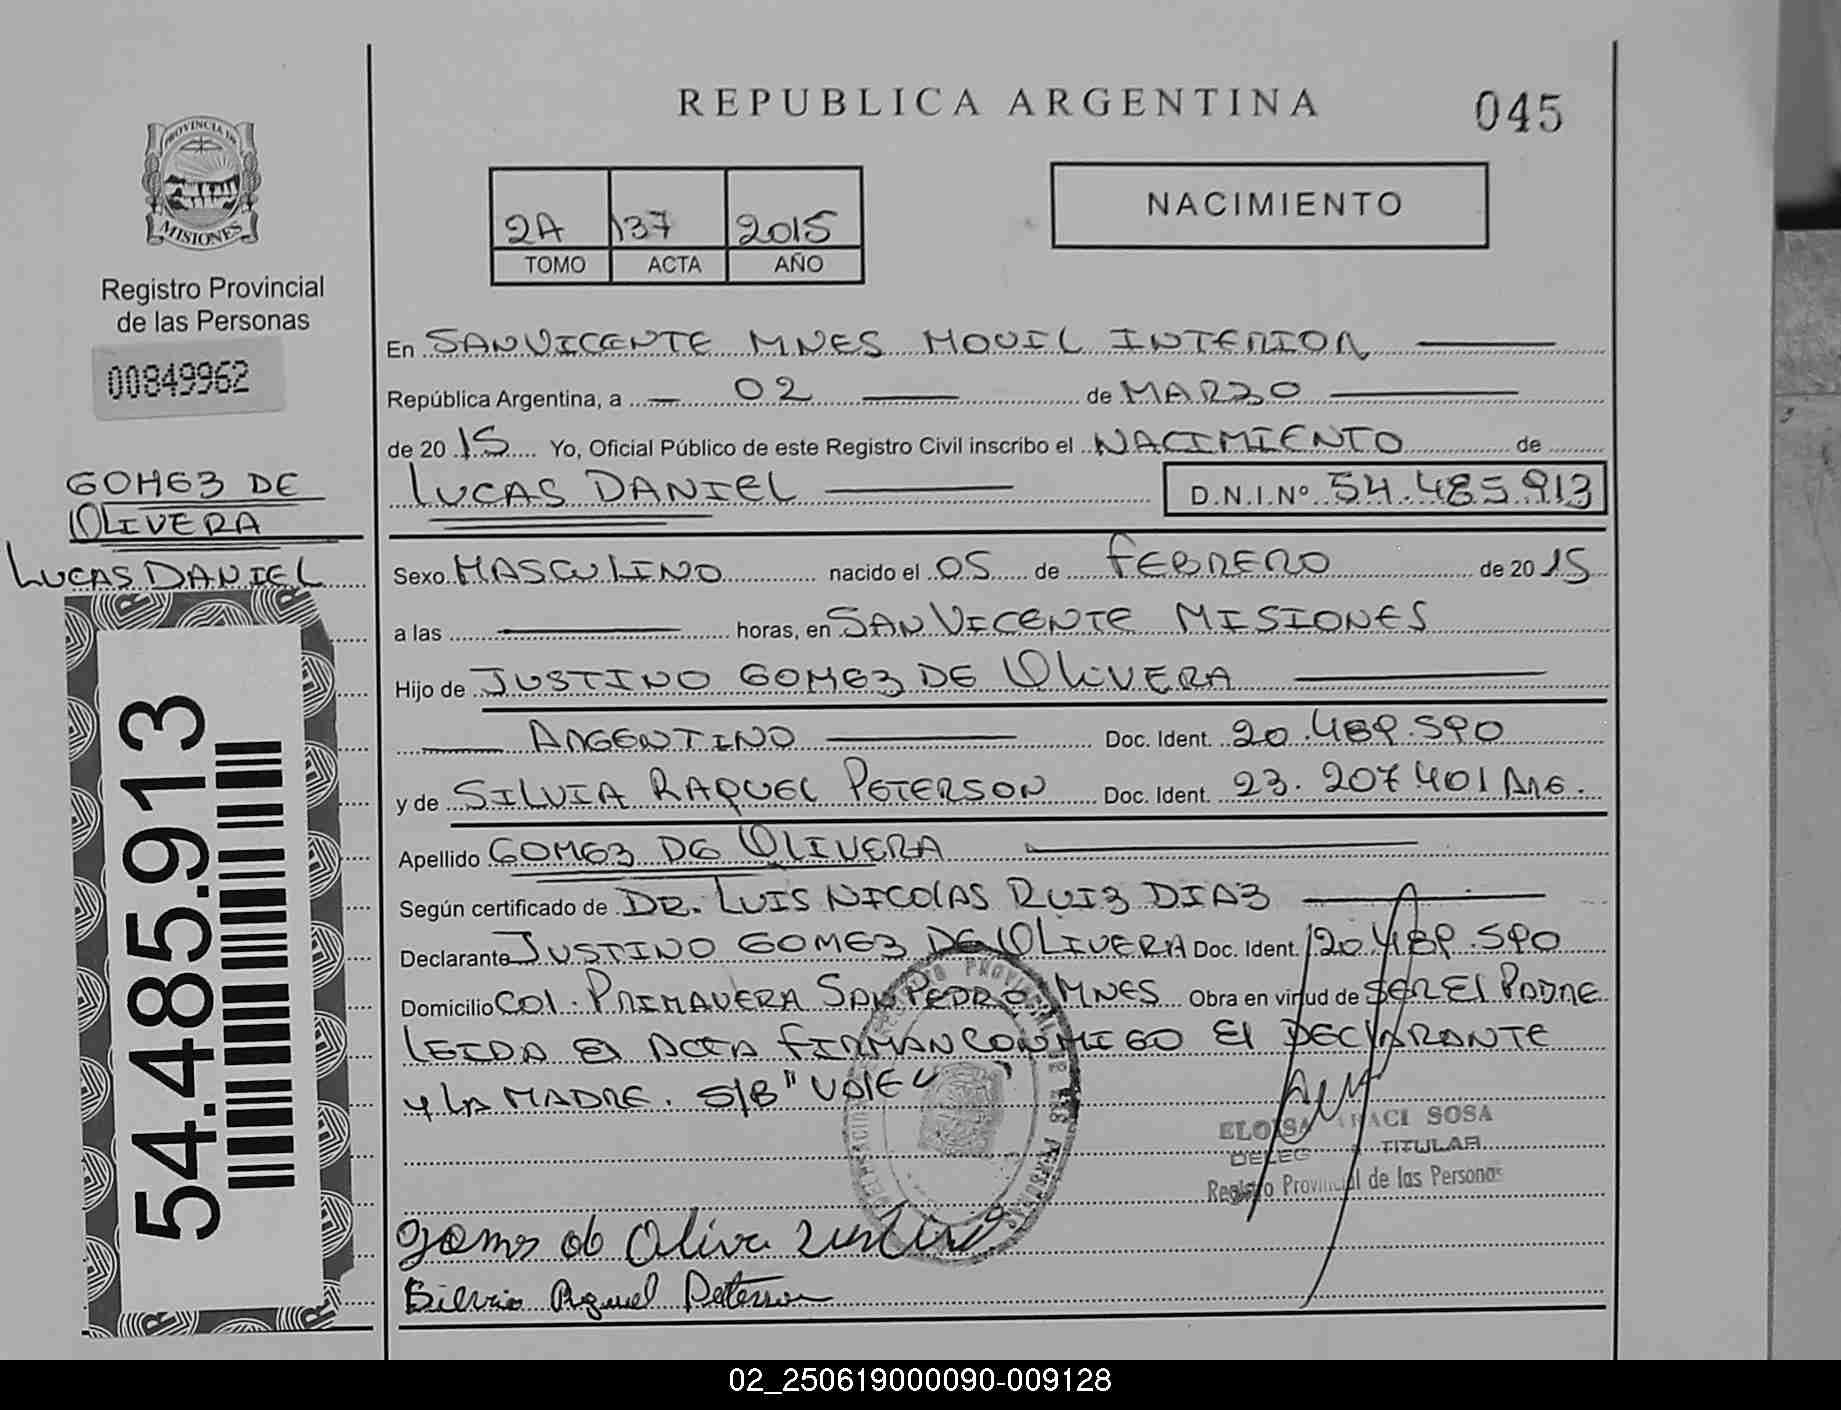 REPUBLICA ARGENTINA
045
PROVINCIA DE
MISIONES
Registro Provincial
de las Personas
00849962
2A 137 2015
TOMO ACTA AÑO
NACIMIENTO
GOMEZ DE
OLIVERA
LUCAS DANIEL
54.485.913
En SAN VICENTE MNES MOVIL INTERIOR
República Argentina, a 02 de MARZO
de 2015 Yo, Oficial Público de este Registro Civil inscribo el NACIMIENTO de
LUCAS DANIEL D.N.I.Nº 54.485.913
Sexo MASCULINO nacido el 05 de FEBRERO de 2015
a las horas, en SAN VICENTE MISIONES
Hijo de JUSTINO GOMEZ DE OLIVERA
ARGENTINO Doc. Ident. 20.489.590
y de SILVIA RAQUEL PETERSON Doc. Ident. 23.207.401 ARG.
Apellido GOMEZ DE OLIVERA
Según certificado de DR. LUIS NICOLAS RUIZ DIAZ
Declarante JUSTINO GOMEZ DE OLIVERA Doc. Ident. 20.489.590
Domicilio COL. PRIMAVERA SAN PEDRO MNES Obra en virtud de SER EL PADRE
LEIDA EL ACTA FIRMAN CONMIGO EL DECLARANTE
Y LA MADRE. S/B "VALE"
ELOISA ARACI SOSA
TITULAR
Registro Provincial de las Personas
Silvia Raquel Peterson
02_250619000090-009128